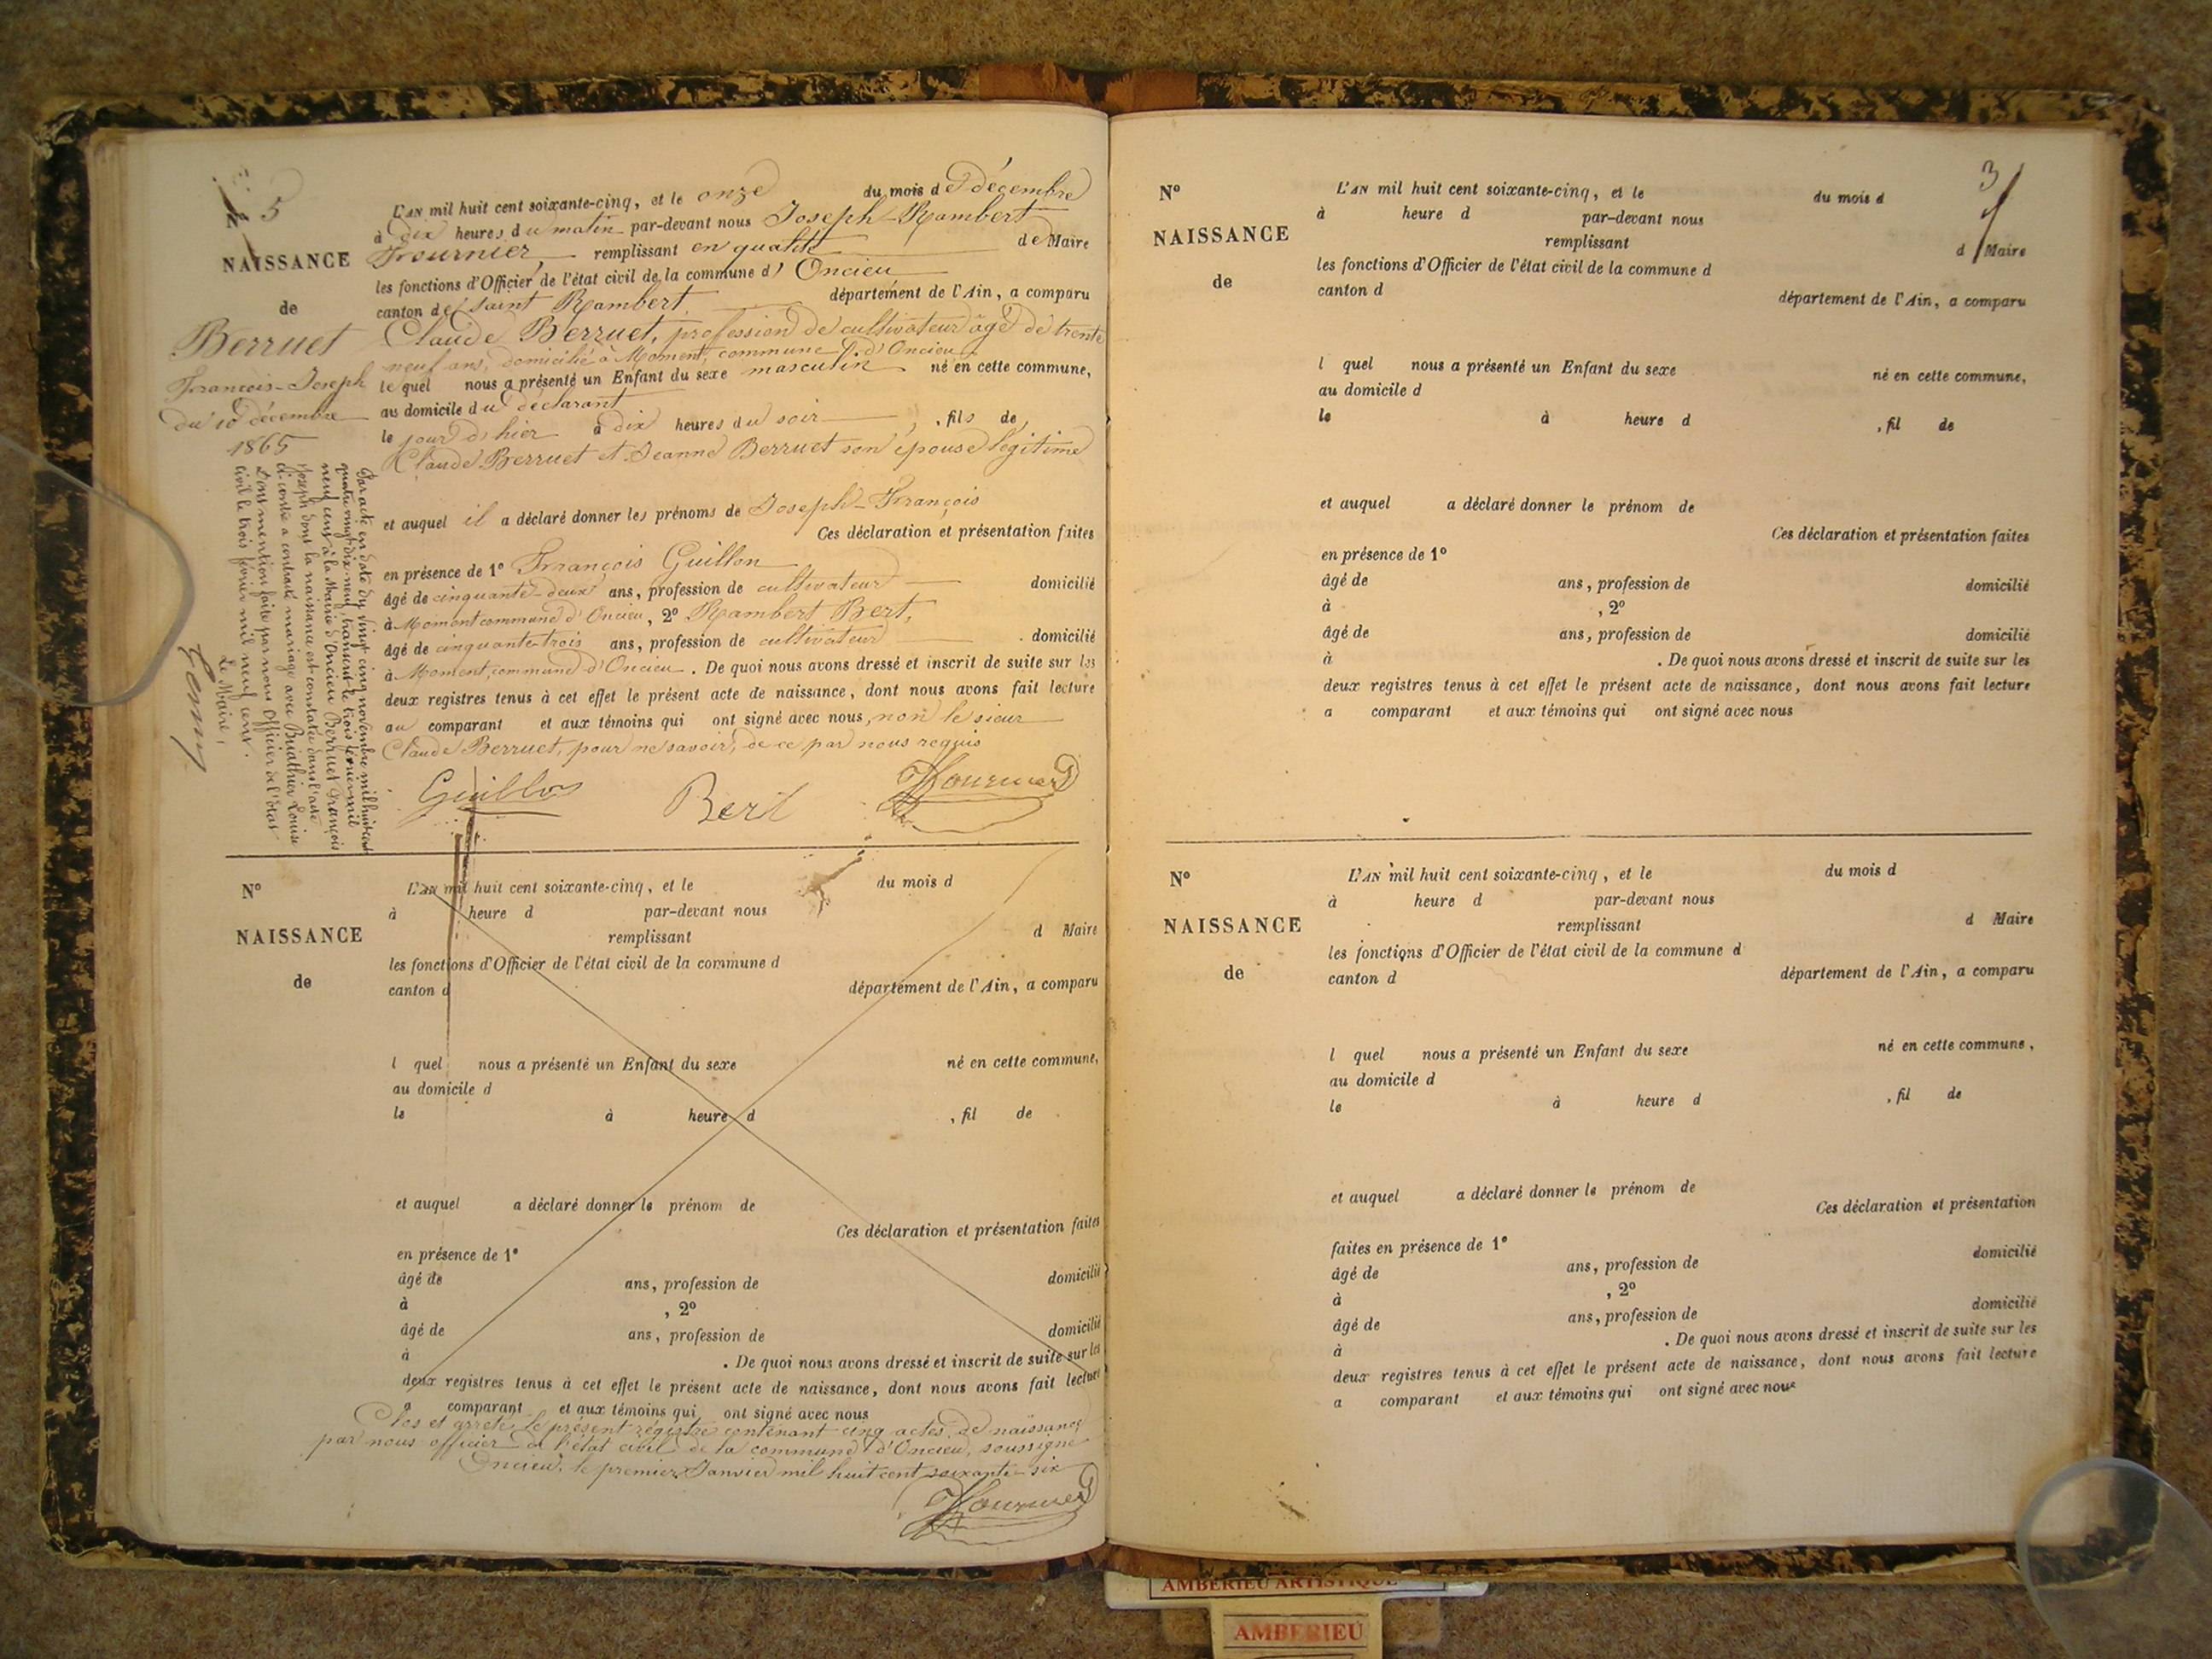 N° 5
NAISSANCE
de
Berruet
François-Joseph
du 10 décembre
1865
L'AN mil huit cent soixante-cinq, et le onze du mois de décembre
à dix heures du matin par-devant nous Joseph-Rambert
Fournier, remplissant en qualité de Maire
les fonctions d'Officier de l'état civil de la commune d'Oncieu
canton de Saint Rambert département de l'Ain, a comparu
Claude Berruet, profession de cultivateur âgé de trente
neuf ans, domicilié à Moment, commune d'Oncieu
lequel nous a présenté un Enfant du sexe masculin né en cette commune,
au domicile du déclarant
le jour d'hier à dix heures du soir, fils de
Claude Berruet et Jeanne Berruet son épouse légitime
et auquel il a déclaré donner les prénoms de Joseph-François
Ces déclaration et présentation faites
en présence de 1° François Guillon
âgé de cinquante-deux ans, profession de cultivateur domicilié
à Moment commune d'Oncieu, 2° Rambert Bert,
âgé de cinquante trois ans, profession de cultivateur domicilié
à Moment, commune d'Oncieu. De quoi nous avons dressé et inscrit de suite sur les
deux registres tenus à cet effet le présent acte de naissance, dont nous avons fait lecture
au comparant et aux témoins qui ont signé avec nous, non le sieur
Claude Berruet, pour ne savoir, de ce par nous requis
Guillon Bert Fournier
Par acte en date du vingt cinq novembre mil huit cent
quatre vingt dix neuf, transcrit le trois février mil
neuf cent à la Mairie d'Oncieu Berruet François
Joseph dont la naissance est constatée dans l'acte
ci-contre a contracté mariage avec Louise
Dont mention faite par nous Officier de l'état
civil le trois février mil neuf cent.
Le Maire,
N°
NAISSANCE
de
L'AN mil huit cent soixante-cinq, et le du mois d
à heure d par-devant nous
remplissant d Maire
les fonctions d'Officier de l'état civil de la commune d
canton d département de l'Ain, a comparu
l quel nous a présenté un Enfant du sexe né en cette commune,
au domicile d
le à heure d , fil de
et auquel a déclaré donner le prénom de
Ces déclaration et présentation faites
en présence de 1°
âgé de ans, profession de domicilié
à , 2°
âgé de ans, profession de domicilié
à . De quoi nous avons dressé et inscrit de suite sur les
deux registres tenus à cet effet le présent acte de naissance, dont nous avons fait lecture
a comparant et aux témoins qui ont signé avec nous
Clos et arrêté le présent régistre contenant cinq actes de naissance
par nous officier de l'état civil de la commune d'Oncieu, soussigné
Oncieu, le premier Janvier mil huit cent soixante-six
Fournier
3
N°
NAISSANCE
de
L'AN mil huit cent soixante-cinq, et le du mois d
à heure d par-devant nous
remplissant d Maire
les fonctions d'Officier de l'état civil de la commune d
canton d département de l'Ain, a comparu
l quel nous a présenté un Enfant du sexe né en cette commune,
au domicile d
le à heure d , fil de
et auquel a déclaré donner le prénom de
Ces déclaration et présentation faites
en présence de 1°
âgé de ans, profession de domicilié
à , 2°
âgé de ans, profession de domicilié
à . De quoi nous avons dressé et inscrit de suite sur les
deux registres tenus à cet effet le présent acte de naissance, dont nous avons fait lecture
a comparant et aux témoins qui ont signé avec nous
N°
NAISSANCE
de
L'AN mil huit cent soixante-cinq, et le du mois d
à heure d par-devant nous
remplissant d Maire
les fonctions d'Officier de l'état civil de la commune d
canton d département de l'Ain, a comparu
l quel nous a présenté un Enfant du sexe né en cette commune,
au domicile d
le à heure d , fil de
et auquel a déclaré donner le prénom de
Ces déclaration et présentation
faites en présence de 1°
âgé de ans, profession de domicilié
à , 2°
âgé de ans, profession de domicilié
à . De quoi nous avons dressé et inscrit de suite sur les
deux registres tenus à cet effet le présent acte de naissance, dont nous avons fait lecture
a comparant et aux témoins qui ont signé avec nous
AMBERIEU ARTISTIQUE
AMBERIEU